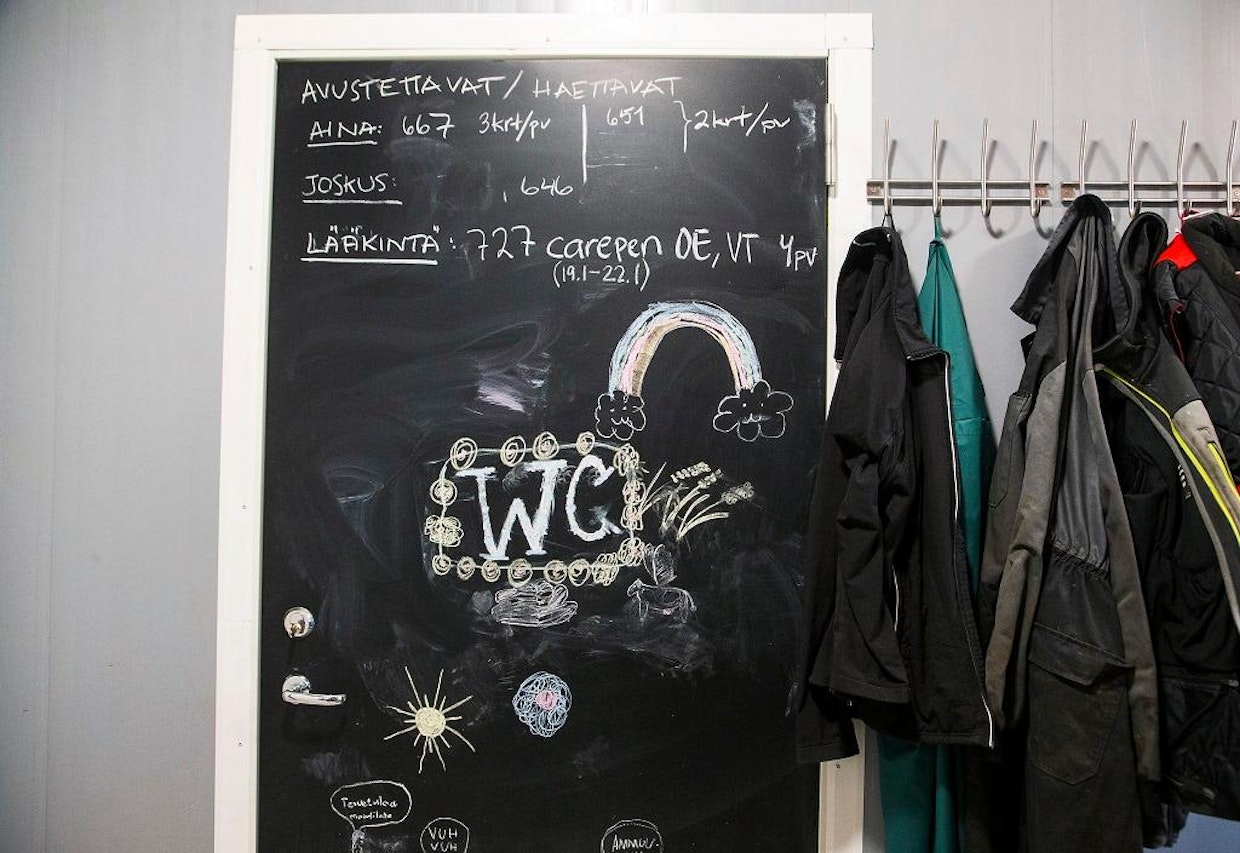 AVUSTETTAVAT/HAETTAVAT
AINA: 667 3krt/pv 651 }2krt/pv
JOSKUS: , 646
LÄÄKINTÄ: 727 carepen OE, VT 4pv
(19.1-22.1)
WC
Tervetuloa
VUH
VUH
AMMUU-